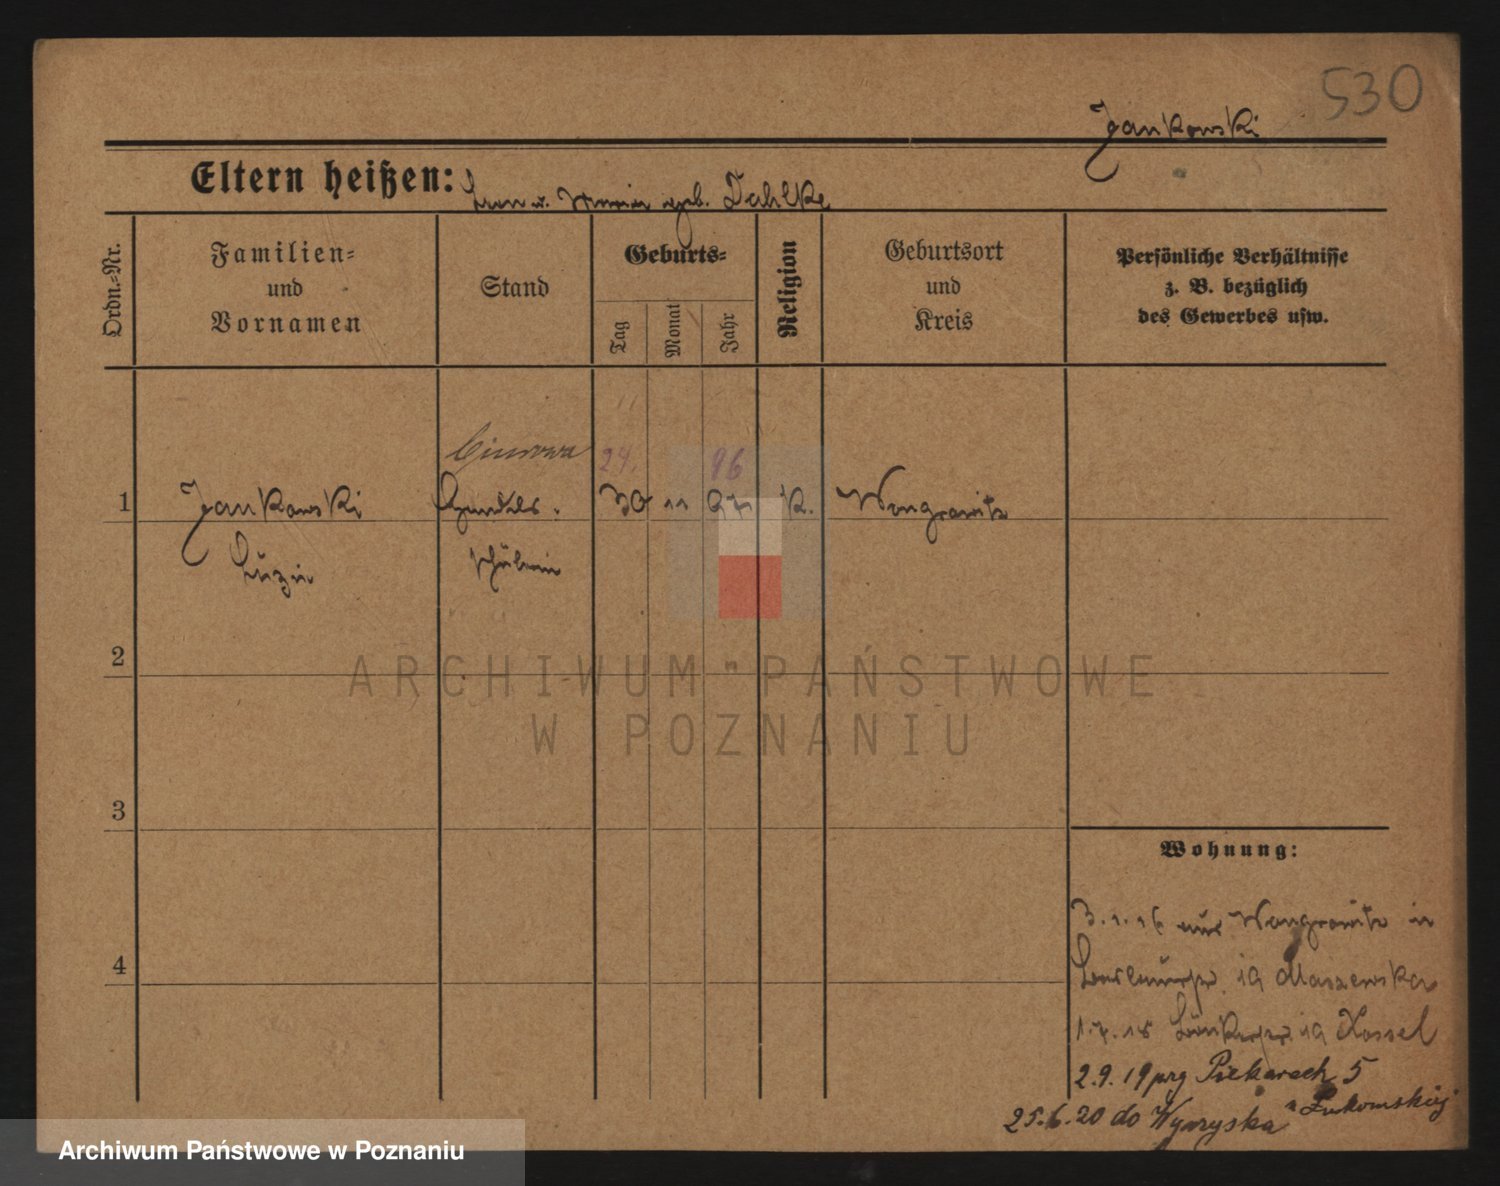 530
Jankowski
Eltern heißen: geb. Dahlke
Ordn.-Nr.
Familien-
und
Vornamen
Stand
Geburts-
Tag
Monat
Jahr
Religion
Geburtsort
und
Kreis
Persönliche Verhältnisse
z. B. bezüglich
des Gewerbes usw.
24. 96
1 Jankowski 30 11 97 k. Wongrowitz
Luzie schülerin
2
ARCHIWUM PAŃSTWOWE
W POZNANIU
3
Wohnung:
3.1.16 aus Wongrowitz in
4
19 Maszewska
1.7.18 19 Kossel
2.9.19 prg Piekarach 5
u Łukomskiej
25.6.20 do Wyrzyska
Archiwum Państwowe w Poznaniu